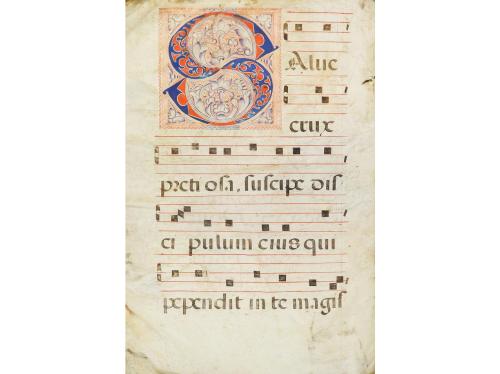 Salue
crux
preti osa, suscipe dis
ci pulum eius qui
pependit in te magis